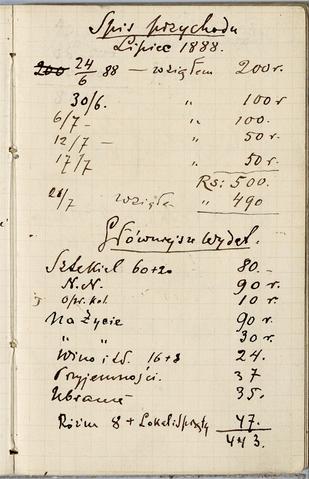 Spis przychodu
Lipiec 1888.
200 24/6 88 — wziąłem 200 r.
30/6. „ 100 r
6/7 — „ 100.
12/7 — „ 50 r.
17/7 „ 50 r.
Rs: 500.
21/7 wziąłem „ 490
Główniejsze wydat.
Sztekiel 60+20 80.—
N.N. 90 r.
Opr. kol. 10 r.
Na życie 90 r.
„ „ 30 r.
Wino i t.d. 16+8 24.
Przyjemności. 37
Ubranie 35.
Różn 8 + Lokal i Sprzęty 47.
443.